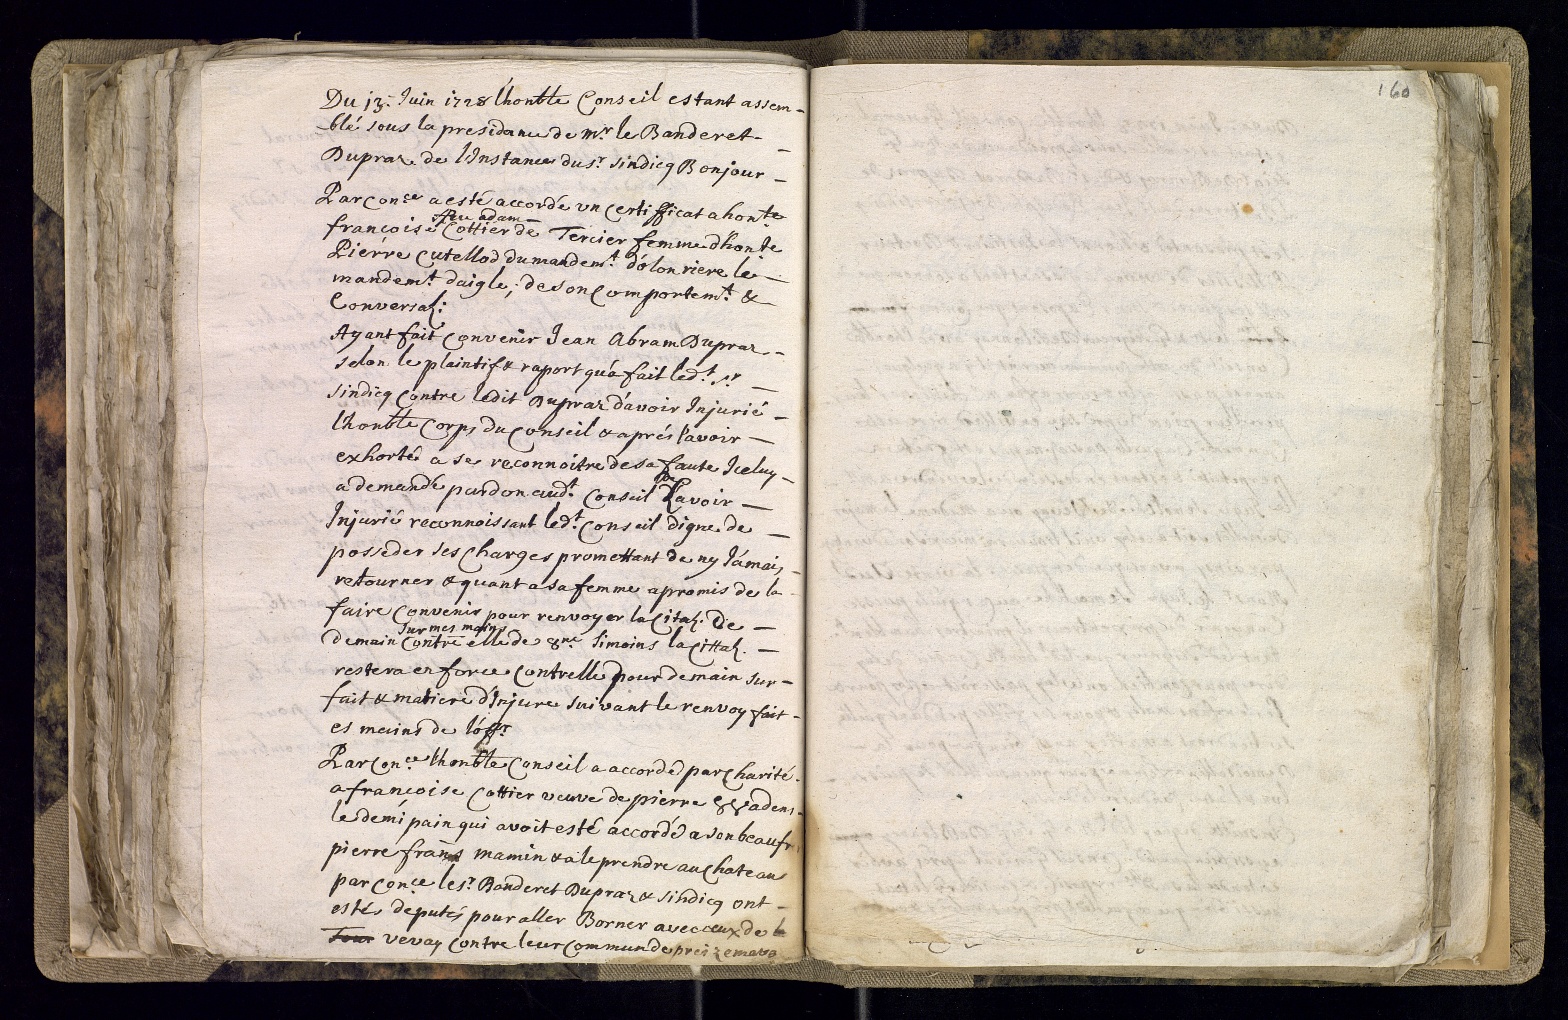 Du 13.e Juin 1728 lhonble Conseil estant assem-
blé sous la presidance de mr. le Banderet
Dupraz de l'Instance du sr. sindicq Bonjour
Par con.ce a esté accordé un certifficat a hon.te
feu adam
françoise Cottier de Tercier femme dhon.te
Pierre Cutellod du mandem.t dólon riere le
mandem.t daigle; de son Comportem.t &
Conversaõ:
Ayant fait Convenir Jean Abram Dupraz
selon le plaintif & raport qu'a fait led.t sr
sindicq contre ledit Dupraz d'avoir Injurié
lhonble Corps du Conseil & aprés l'avoir
exhorté a se reconnoitre de sa faute Iceluy
a demandé pardon aud.t Conseil de Lavoir
Injurié reconnoissant led.t Conseil digne de
posseder ses Charges promettant de ny Jamais
retourner & quant a sa femme a promis de la
faire Convenir pour renvoyer la Citaõ. De
sur mes mains
demain Contre elle de &ne. simoins la Cittaõ.
restera en force Contrelle pour demain sur
fait & matiere d'Injure suivant le renvoy fait
es mains de lóffr
Par con.ce lhonble Conseil a accordé par Charité
a françoise Cottier veuve de pierre
le demi pain qui avoit esté accordé a son beaufr.
pierre frañs mamin & a le prendre au Chateau
par con.ce les.r Banderet Dupraz & sindicq ont
estés deputés pour aller Borner avec ceux de
Tour vevay Contre leur Commun de pres
160